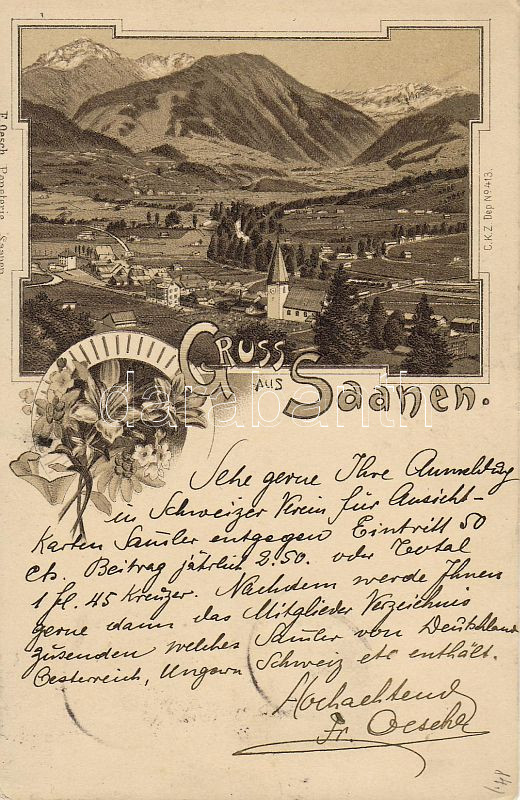 F. Oesch, Papeterie, Saanen
C.K.Z. Dep No 413.
GRUSS
AUS
Saanen.
darabanth
Sehe gerne Ihre Anmeldung
in Schweizer Verein für Ansicht-
Karten Samler entgegen Eintritt 50
cts. Beitrag jährlich 2.50. oder Tootal
1 fl. 45 Kreuzer. Nachdem werde Ihnen
gerne dann das Mitglieder Verzeichnis
zusenden welches Samler von Deutschland
Oesterreich, Ungarn Schweiz etc enthält.
Hochachtend
Fr. Oesch